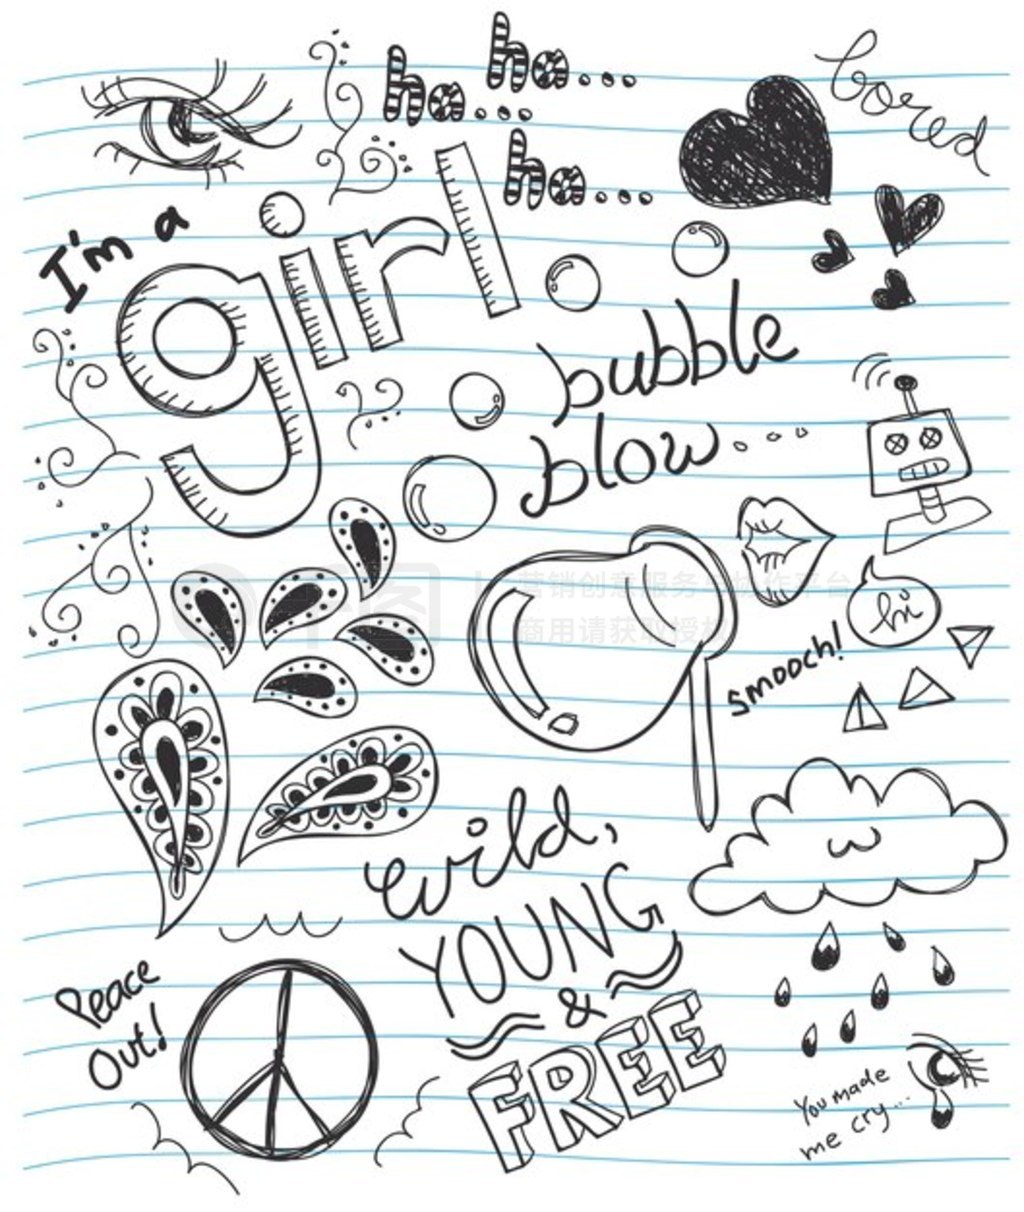 ha...
ha...
ha...
bored
I'm a
girl
bubble
blow...
hi
smooch!
wild,
YOUNG
&
FREE
Peace
Out!
You made
me cry...
营销创意服务与协作平台
商用请获取授权